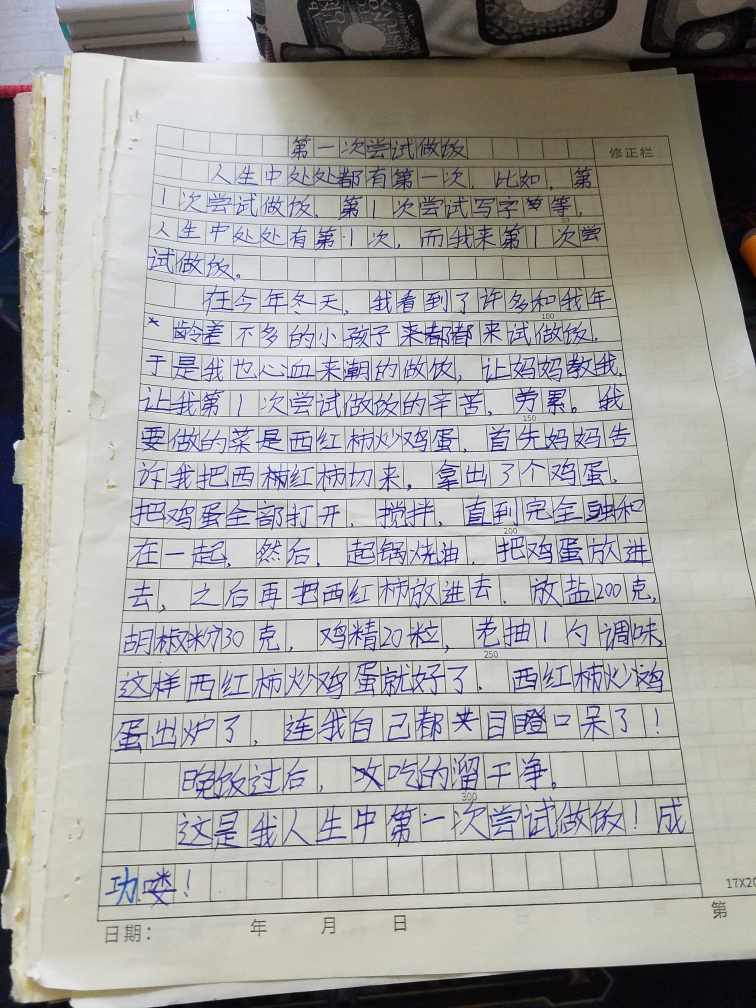 第一次尝试做饭
修正栏
人生中处处都有第一次，比如，第
1次尝试做饭，第1次尝试写字等，
人生中处处有第1次，而我来第1次尝
试做饭。
在今年冬天，我看到了许多和我年
100
龄差不多的小孩子都来试做饭，
于是我也心血来潮的做饭，让妈妈教我，
让我第1次尝试做饭的辛苦，劳累。我
150
要做的菜是西红柿炒鸡蛋，首先妈妈告
诉我把西红柿切来，拿出了个鸡蛋，
把鸡蛋全部打开，搅拌，直到完全融和
200
在一起，然后，起锅烧油，把鸡蛋放进
去，之后再把西红柿放进去，放盐200克，
胡椒粉30克，鸡精20粒，老抽1勺调味，
250
这样西红柿炒鸡蛋就好了，西红柿炒鸡
蛋出炉了，连我自己都目瞪口呆了！
晚饭过后，吃的溜干净。
300
这是我人生中第一次尝试做饭！成
功喽！
17X20
日期： 年 月 日 第